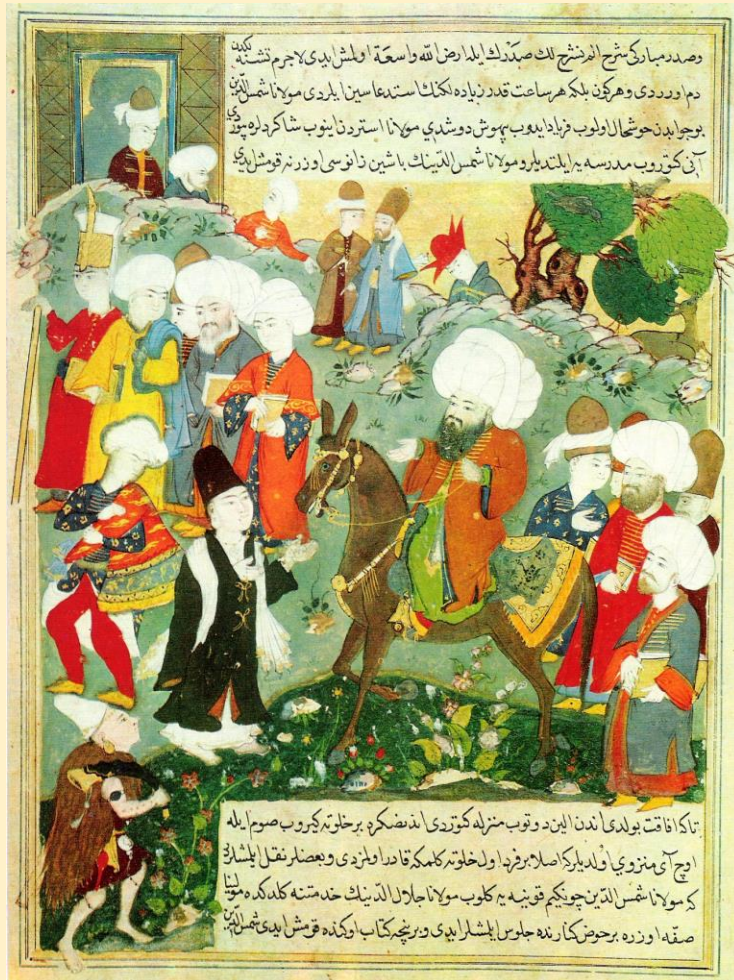 وصدر مباركى شرح الم نشرح لك صدرك ايله ارض الله واسعة اولمش ايدى لاجرم تشنه لكدن
دم اورردى وهركون بلكه هر ساعت قدر زياده لكنك استدعاسين ايلردى مولانا شمس الدين
بو جوابدن خوشحال اولوب فرياد ايدوب بيهوش دوشدى مولانا استردن اينوب شاكردلره بيوردى
آنى كتوروب مدرسه يه ايلتديلر و مولانا شمس الدينك باشين زانوسى اوزرنه قومش ايدى
تاكه افاقت بولدى اندن الين دوتوب منزله كتوردى اندنصكره بر خلوته كيروب صوم ايله
اوچ آى منزوى اولديلر كه اصلا بر فرد اول خلوته كلمكه قادر اولمزدى وبعضلر نقل ايلمشلر
كه مولانا شمس الدين چونكيم قونيه يه كلوب مولانا جلال الدينك خدمتنه كلدكده مولينا
صفه اوزره بر حوض كنارنده جلوس ايلمشلر ايدى وبرنچه كتاب اوكنده قومش ايدى شمس الدين